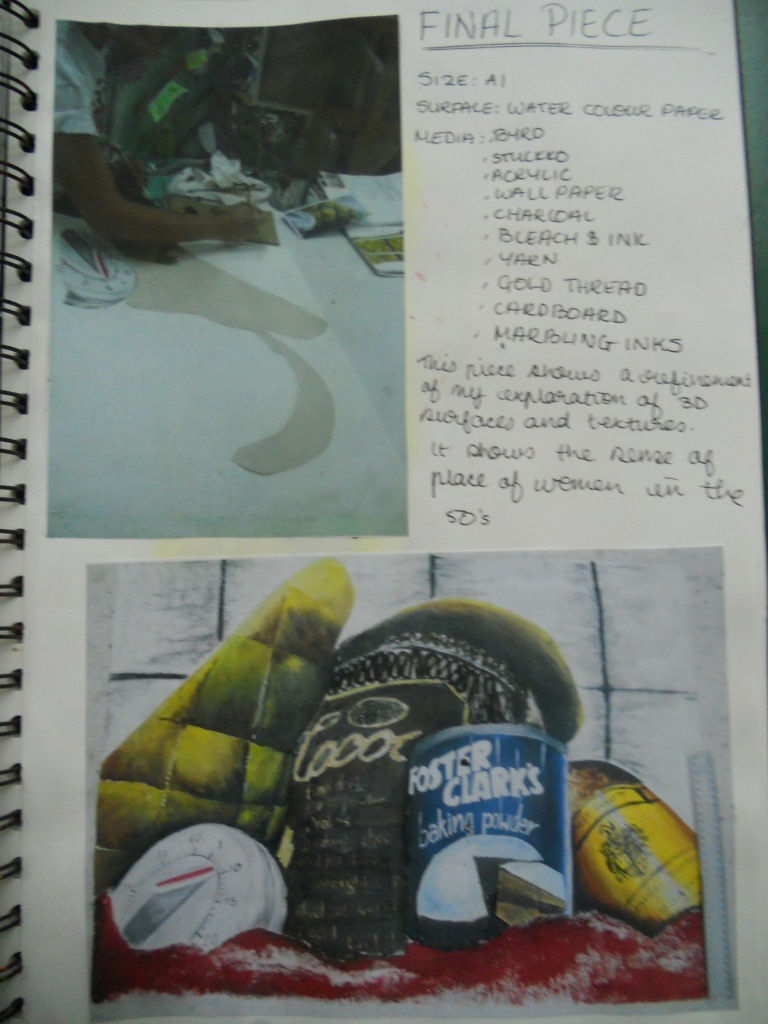 FINAL PIECE
SIZE: A1
SURFACE: WATER COLOUR PAPER
MEDIA: . BYRO
. STUCKKO
. ACRYLIC
. WALL PAPER
. CHARCOAL
. BLEACH & INK
. YARN
. GOLD THREAD
. CARDBOARD
. MARBLING INKS
This piece shows a refinement
of my exploration of 3D
surfaces and textures.
It shows the sense of
place of women in the
50's
Cocoa
FOSTER
CLARK'S
baking powder
5
10
15